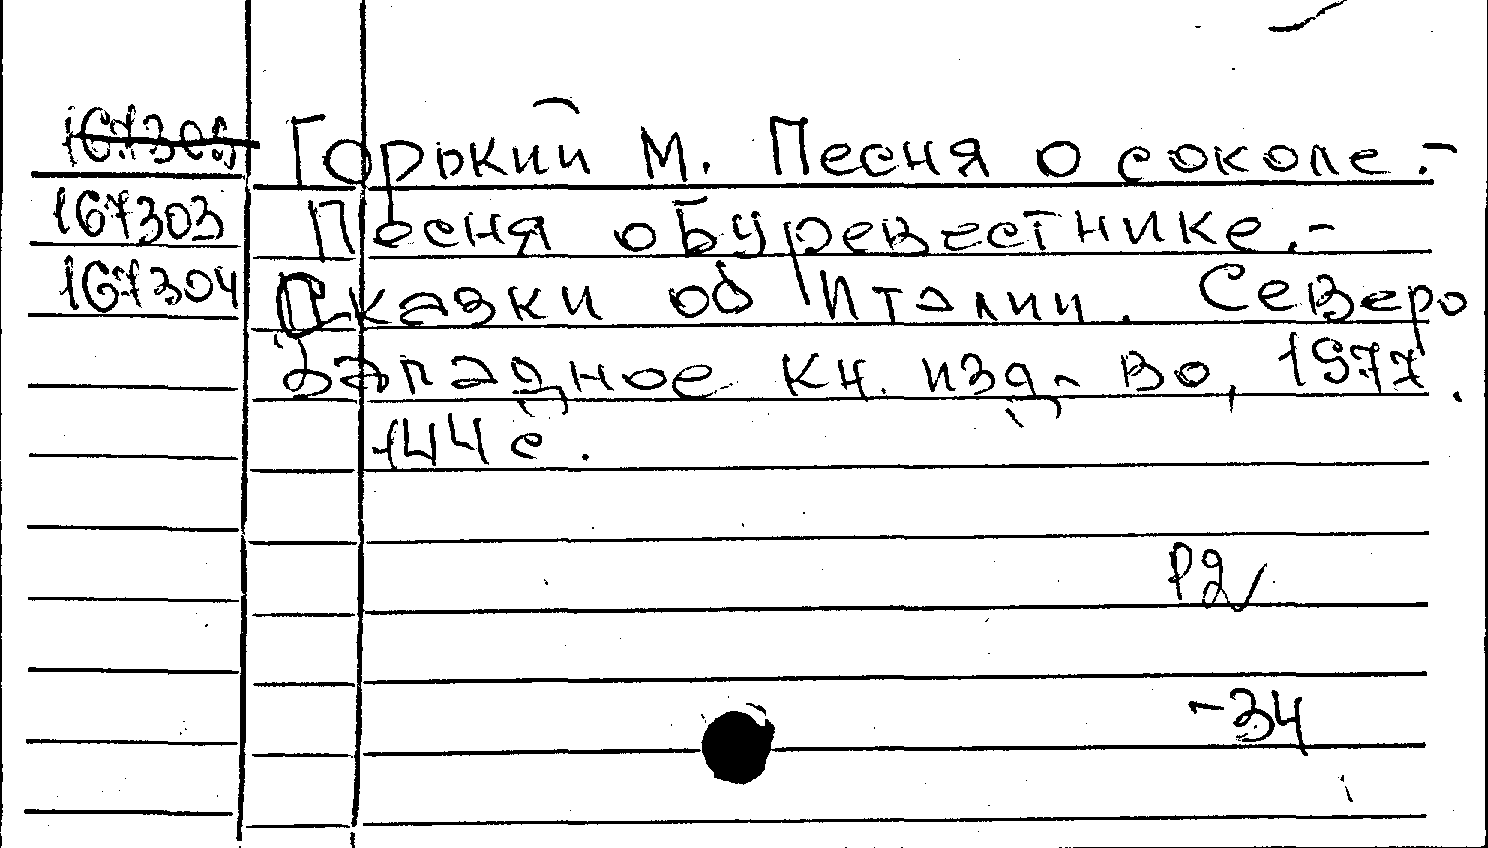 167305 Горький М. Песня о соколе.-
167303 Песня о Буревестнике.-
167304 Сказки об Италии. Северо
Западное кн. изд-во, 1977.
144 с.
Р2
-34